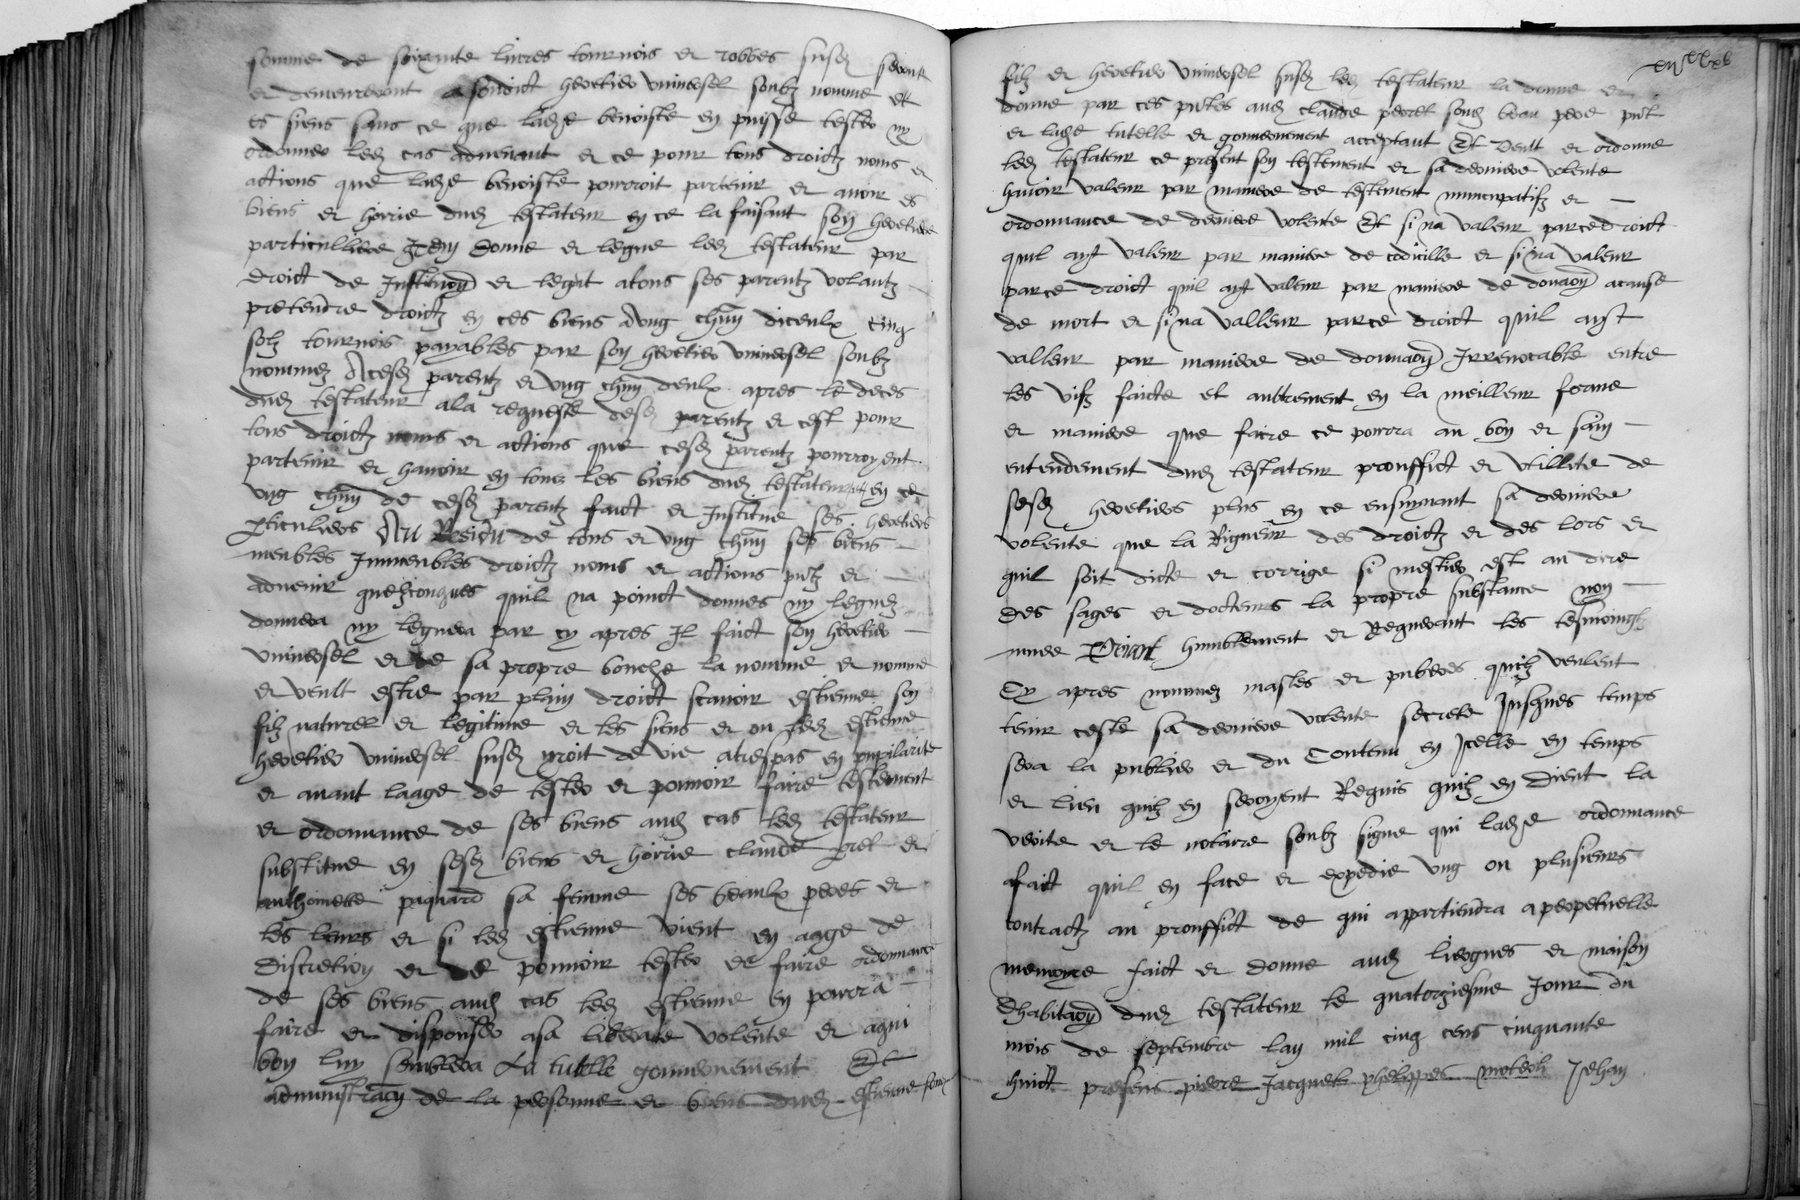 somme de soixante livres tournois et robbes susd seront
et demeureront a sondict heretier universel soubz nomme et
es siens sans ce que ladite benoiste en puysse tester ny
ordonner led cas advenant et ce pour tous droictz noms et
actions que ladite benoiste pourroit partenir et avoir es
biens et horrie dud testateur en ce la faisant son heretiere
particulliere Item donne et legue led testateur par
droict de Institucion et legat a tous ses parentz volantz
pretendre droictz en ces biens A ung chun diceulx cinq
solz tournois payables par son heretier universel soubz
nommez A cesd parentz et ung chun deulx apres le deces
dud testateur a la requeste desd parentz et cest pour
tous droictz noms et actions que cesd parentz pourroyent
partenir et havoir en tous les biens dud testateur en ce
ung chun de cesd parentz faict et Institue ses heretiers
pticuliers Au Residu de tous et ung chun ses biens
meubles Immeubles droictz noms et actions pntz et
advenir quelzconques quil na poinct donnes ny leguez
donnera ny leguera par cy apres Il faict son heretier
universel et de sa propre bouche la nomme et nomme
et veult estre par plain droict scavoir estienne son
filz naturel et legitime et les siens et ou led estienne
heretier universel susd yroit de vie a trespas en pupilarite
et avant laage de tester et pouvoir faire testement
et ordonnance de ses biens aud cas led testateur
substitue en sesd biens et horrie claude et
anthoinete paquard sa femme ses beaulx peres et
les leurs et si led estienne vient en aage de
discretion et de pouvoir tester et faire ordonnance
de ses biens aud cas led estienne en pourra
faire et disposer a sa liberale volente et a qui
bon luy semblera La tutelle gouvernement Et
administracion de la personne et biens dud estienne son
filz et heretier universel susd led testateur la donne et
donne par ces pntes aud claude peret sond beau pere pnt
et ladite tutelle et gouvernement acceptant Et veult et ordonne
led testateur ce present son testement et sa derniere volente
havoir valeur par maniere de testement nuncupatifz et
ordonnance de derniere volente Et si na valeur par ce droict
quil ayt valeur par maniere de codicille et si na valeur
par ce droict quil ayt valeur par maniere de donnacion a cause
de mort et si na valleur par ce droict quil ayt
valleur par maniere de donnacion Irrevocable entre
les vifz faicte et aultrement en la meilleur forme
et maniere que faire ce pourra au bon et sain
entendement dud testateur prouffict et utillite de
sesd heretiers plus en ce ensuyvant sa derniere
volente que la Rigueur des droictz et des lors et
quil soit dicte et corrige si mestier est au dire
des sages et docteurs la propre substance non
muee Priant humblement et Requerant les tesmoingtz
Cy apres nommez masles et puberes quilz veulent
tenir ceste sa derniere volente secrete Jusques temps
sera la publier et du Contenu en Icelle en temps
et lieu quilz en seroyent Requis quilz en dient la
verite et le notaire soubz signe qui ladite ordonnance
a faict quil en face et expedie ung ou plusieurs
contractz au prouffict de qui appartiendra a perpetuelle
memoyre faict et donne aud liergues et maison
dhabitacion dud testateur le quatorziesme Jour du
mois de septembre lan mil cinq cens cinquante
huict presens pierre Jacquet phelippes Jehan